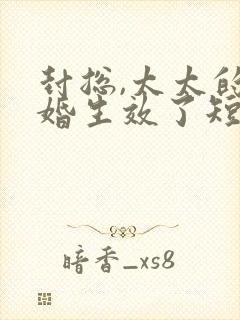 封总,太太的
婚生效了短
暗香_xs8